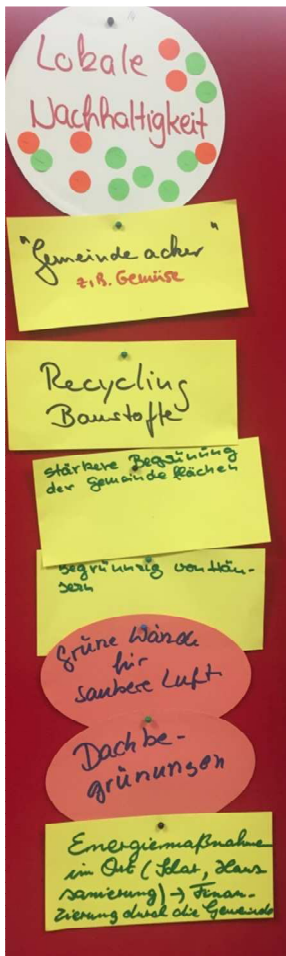 Lokale
Nachhaltigkeit
"Gemeindeacker"
z.B. Gemüse
Recycling
Baustoffe
stärkere Begrünung
der Gemeindeflächen
Begrünung von Häu-
sern
Grüne Wände
für
saubere Luft
Dachbe-
grünungen
Energiemaßnahme
im Ort (Solar, Haus
sanierung) → Finan-
zierung durch die Gemeinde